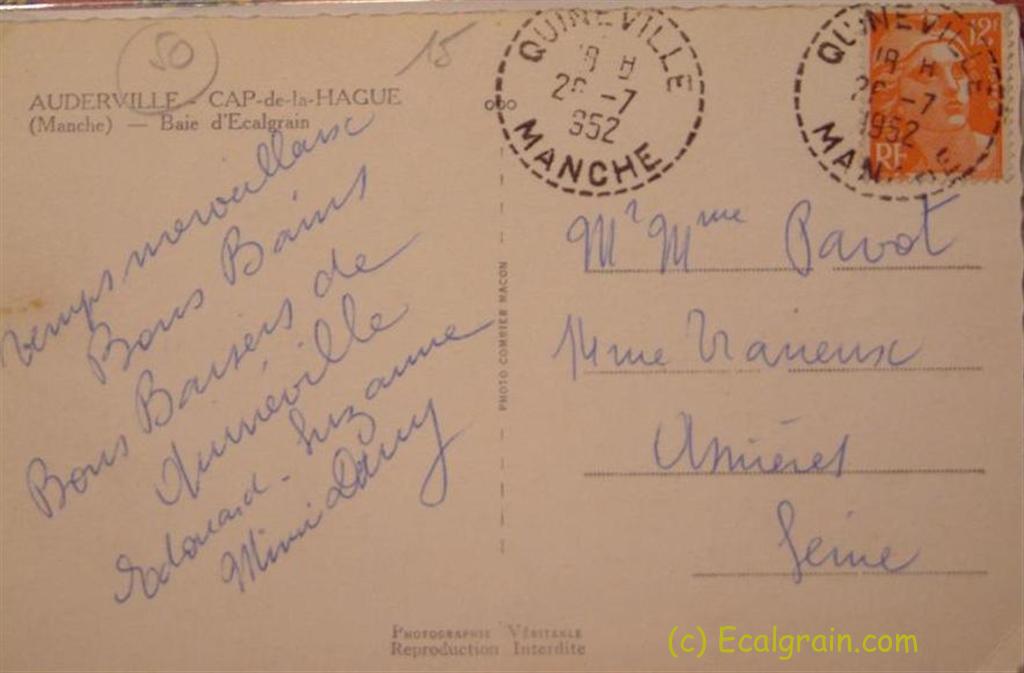 50
15
AUDERVILLE - CAP-de-la-HAGUE
(Manche) — Baie d'Ecalgrain
QUINEVILLE
18 H
26 -7
1952
MANCHE
QUINEVILLE
18 H
26 -7
1952
MAN
12F
RF
Temps merveilleux
Bons Bains
Bons Baisers de
Quinéville
Edouard - Suzanne
Mimi Dany
PHOTO COMBIER MACON
Mr Mme Pavot
14 rue
Asnières
Seine
PHOTOGRAPHIE VÉRITABLE
Reproduction Interdite
(c) Ecalgrain.com